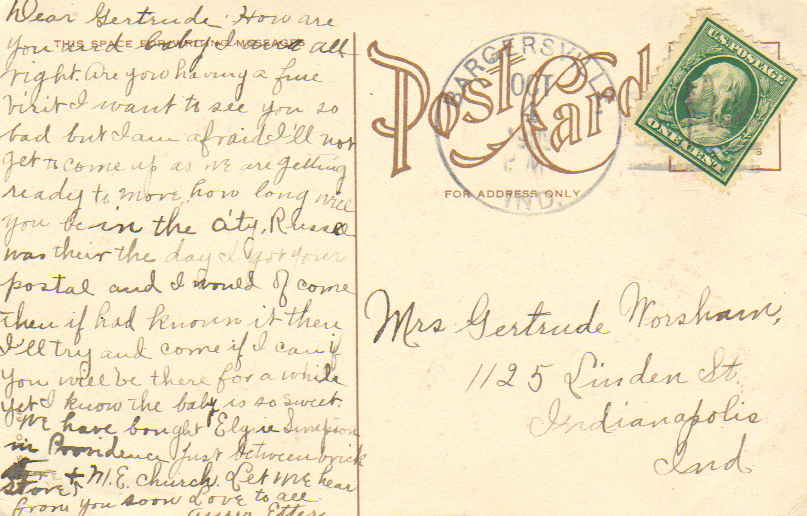 Dear Gertrude. How are
you and baby I am all
right. Are you having a fine
visit I want to see you so
bad but I am afraid I'll not
get to come up as we are getting
ready to move, how long will
you be in the city. Russel
was their the day I got your
postal and I would of come
then if had known it then
I'll try and come if I can if
you will be there for a while
yet I know the baby is so sweet.
We have bought Elgie Simpson
in Providence just between brick
store + M.E. church. Let me hear
from you soon Love to all
THIS SPACE FOR WRITING MESSAGES
Post Card
FOR ADDRESS ONLY
BARGERSVILLE
OCT
IND.
U.S. POSTAGE
ONE CENT
Mrs Gertrude Worsham,
1125 Linden St.
Indianapolis
Ind